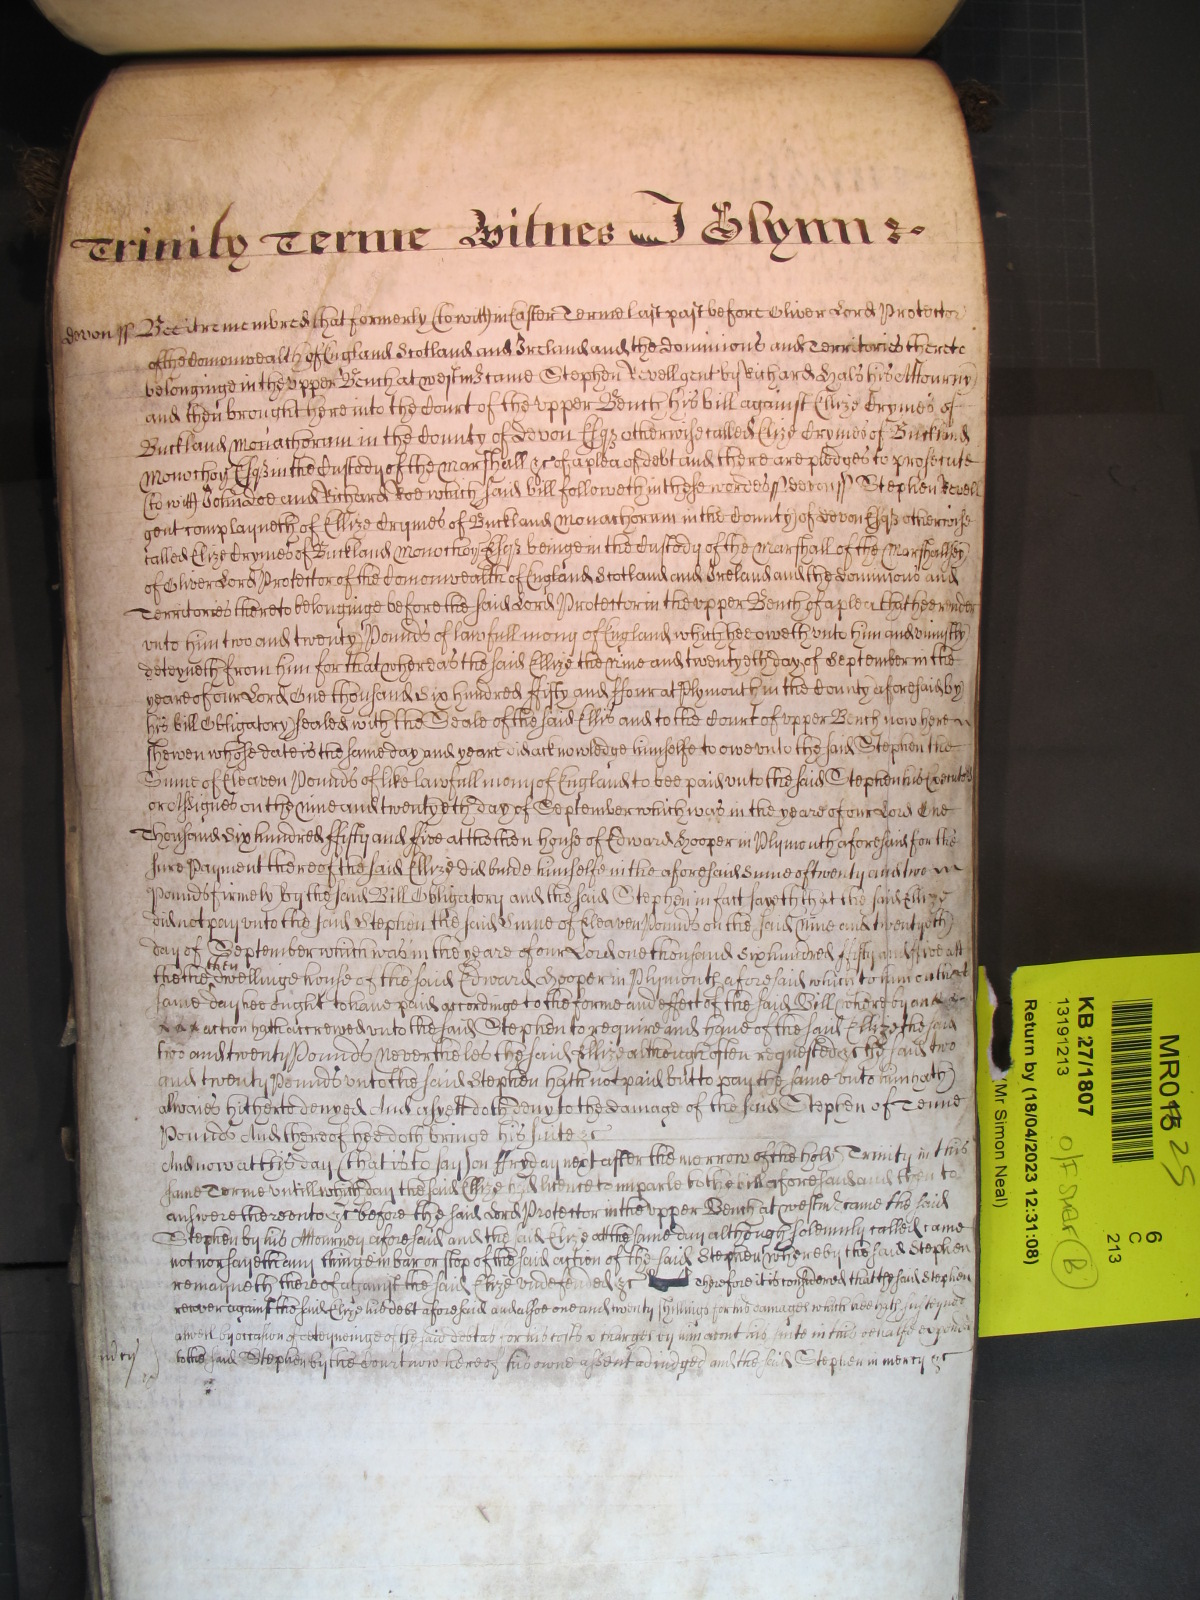 Trinity Terme Witnes J Glynn &c
devon ss Bee it remembred that formerly (to witt) in Easter Terme last past before Oliver Lord Protector
of the Comonwealth of England Scotland and Ireland and the dominions and Territories thereto
belonginge in the upper Bench at westmr came Stephen Revell gent by Richard Hals his Attourny
and then brought here into the Court of the upper Bench his bill against Ellize Crymes of
Buckland Monachorum in the County of devon Esqz otherwise called Elize Crymes of Buckland
Monochoy Esqz in the Custody of the Marshall &c of a plea of debt and there are pledges to prosecute
(to witt) John doe and Richard Roe which said bill followeth in these wordes ss devon ss Stephen Revell
gent complayneth of Ellize Crymes of Buckland Monachorum in the County of devon Esqz otherwise
called Elize Crymes of Buckland Monochoy Esqz beinge in the Custody of the Marshall of the Marshallsey
of Oliver Lord Protector of the Comonwealth of England Scotland and Ireland and the dominions and
Territories thereto belonginge before the said Lord Protector in the upper Bench of a plea that hee render
unto him two and twenty Pounds of lawfull mony of England which hee oweth unto him and uniustly
deteyneth from him for that whereas the said Ellize the Nine and twentyeth day of September in the
yeare of our Lord One thousand Six hundred ffifty and ffour at Plymouth in the County aforesaid by
his bill Obligatory sealed with the Seale of the said Ellis and to the Court of upper Bench now here
shewen whose date is the same day and yeare did acknowledge himselfe to owe unto the said Stephen the
Sume of Eleaven Pounds of like lawfull mony of England to bee paid unto the said Stephen his Executors
or Assignes on the Nine and twentyeth day of September which was in the yeare of our Lord One
Thousand Six hundred ffifty and ffive at the then house of Edward Hooper in Plymouth aforesaid for the
sure Payment thereof the said Ellize did binde himselfe in the aforesaid sume of twenty and two
Pounds firmely by the said Bill Obligatory and the said Stephen in fact sayeth that the said Ellize
did not pay unto the said Stephen the said Sume of Eleaven Pounds on the said Nine and twentyeth
day of September which was in the yeare of our Lord one thousand Six hundred ffifty and ffive att
the then dwellinge house of the said Edward Hooper in Plymouth aforesaid which to him on that
same day hee ought to have paid accordinge to the forme and effect of the said Bill whereby an
action hath accrewed unto the said Stephen to require and have of the said Ellize the said
two and twenty Pounds Neverthelesse the said Ellize although often requested &c the said two
and twenty Pounds unto the said Stephen hath not paid butt to pay the same unto him hath
alwaies hitherto denyed And as yett doth deny to the damage of the said Stephen of Tenne
Pounds And thereof hee doth bringe his suite &c
And now at this day (that is to say) on ffryday next after the morrow of the holy Trinity in this
same Terme untill which day the said Ellize had licence to imparle to the bill aforesaid and then to
answere thereunto &c before the said Lord Protector in the upper Bench at westmr came the said
Stephen by his Attourney aforesaid and the said Elize at the same day although solemnly called came
not nor sayeth any thinge in bar or stop of the said action of the said Stephen whereby the said Stephen
remayneth thereof against the said Elize undefended &c Therefore it is considered that the said Stephen
recover against the said Elize his debt aforesaid and alsoe one and twenty shillings for his damages which hee hath susteyned
aswell by occasion of deteyneinge of the said debt as for his costs & charges by him about his suite in this behalfe expended
to the said Stephen by the Court now here of his owne assent adiudged and the said Stephen in mercy &c
mercy
MR01 25
KB 27/1807
13191213
Return by (18/04/2023 12:31:08)
(Mr Simon Neal)
6
C
213
B